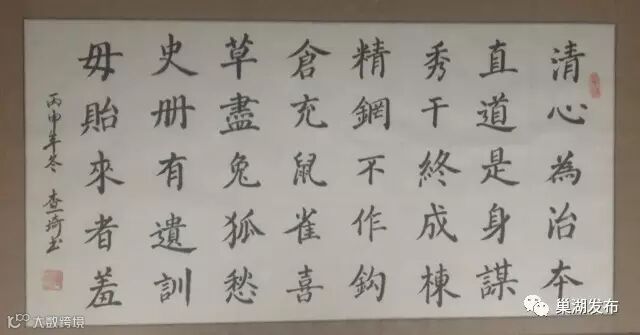 清心為治本
直道是身謀
秀干終成棟
精鋼不作鈎
倉充鼠雀喜
草盡兔狐愁
史册有遺訓
毋貽來者羞
丙申年冬 查琦书
巢湖发布
大数跨境